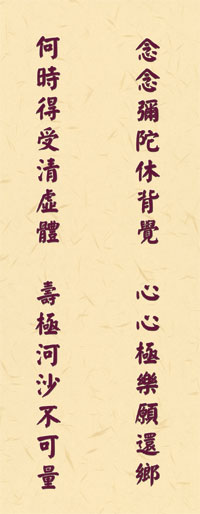 念念彌陀休背覺 心心極樂願還鄉
何時得受清虛體 壽極河沙不可量